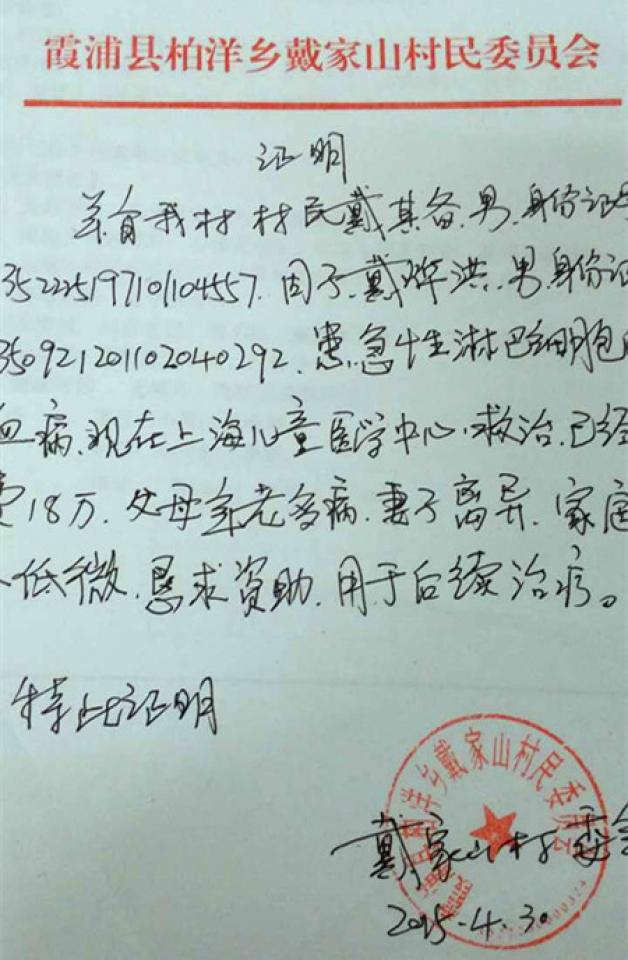 霞浦县柏洋乡戴家山村民委员会
证明
兹有我村村民戴其备,男,身份证号
352225197101104557.因子,戴烨洪,男,身份证
350921201102040292.患急性淋巴细胞
血病,现在上海儿童医学中心,救治,已经
费18万.父母年老多病,妻子离异,家庭
低微,恳求资助,用于后续治疗。
特此证明
戴家山村委会
2015.4.30
柏洋乡戴家山村民委员会